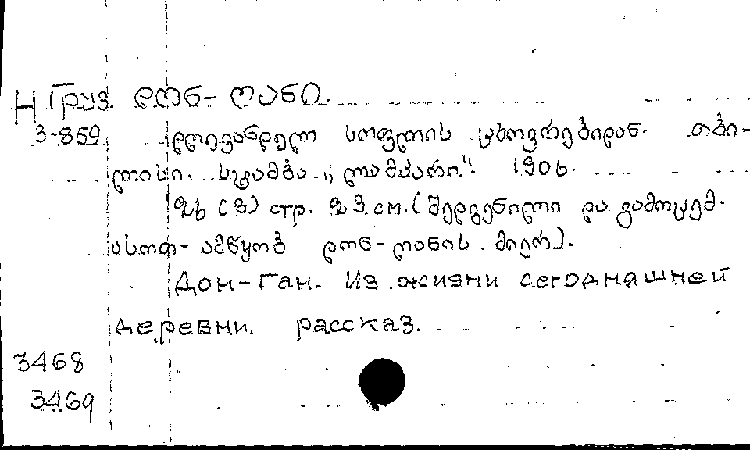 Н Груз. დონ-ღანი.
3-859 დღევანდელ სოფლის ცხოვრებიდან. თბი-
ლისი. სტამბა „ლამპარი". 1906.
26 (3) стр. 23 см. (შედგენილი და გამოცემ.
ასოთ-ამწყობ დონ-ღანის მიერ).
Дон-Ган. Из жизни сегодняшней
деревни. рассказ.
3468
3469